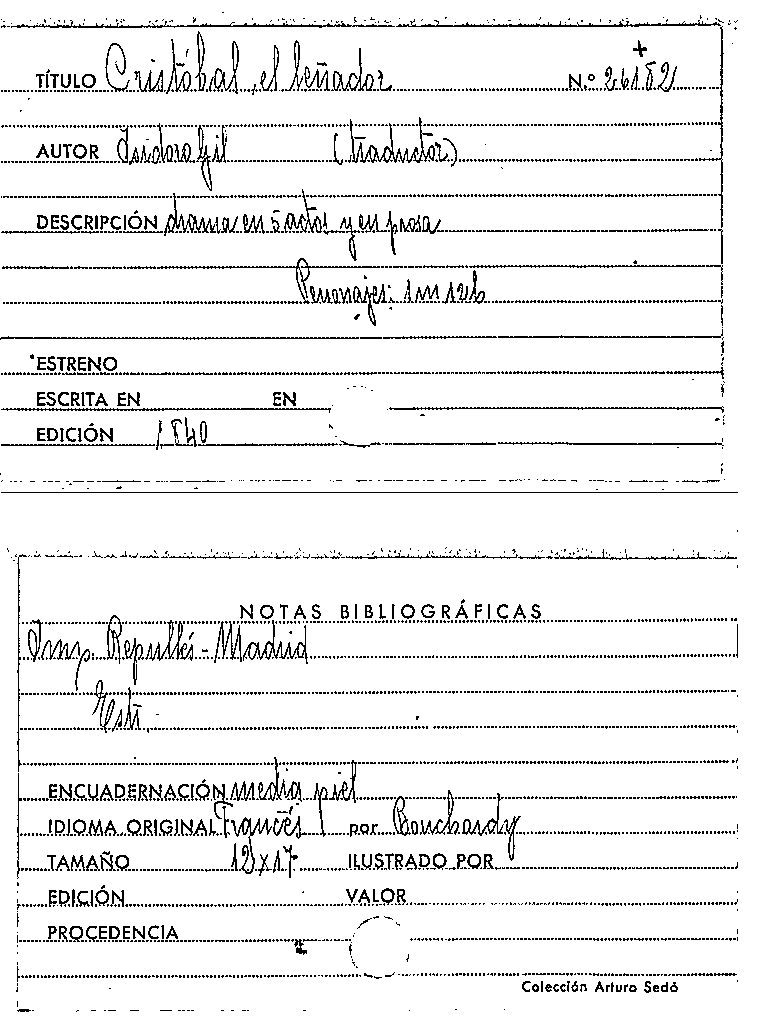 +
TÍTULO Cristóbal, el leñador N.º 26182
AUTOR Isidoro Gil (traductor)
DESCRIPCIÓN drama en 5 actos y en prosa
Personajes:
ESTRENO
ESCRITA EN EN
EDICIÓN 1840
NOTAS BIBLIOGRÁFICAS
Imp. Repullés - Madrid
ENCUADERNACIÓN media piel
IDIOMA ORIGINAL Francés por Bouchardy
TAMAÑO 12x17 ILUSTRADO POR
EDICIÓN VALOR
PROCEDENCIA
Colección Arturo Sedó